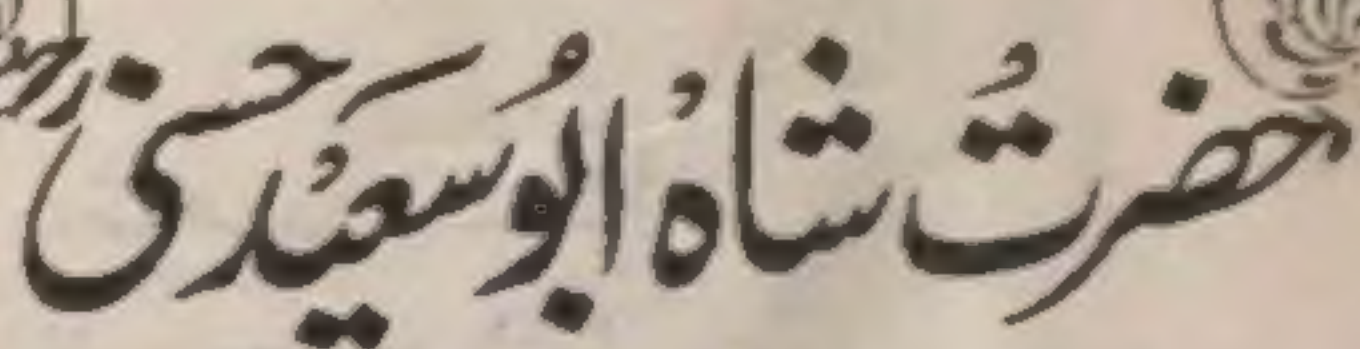 حضرتُ شاہ ابُو سعید حسنی